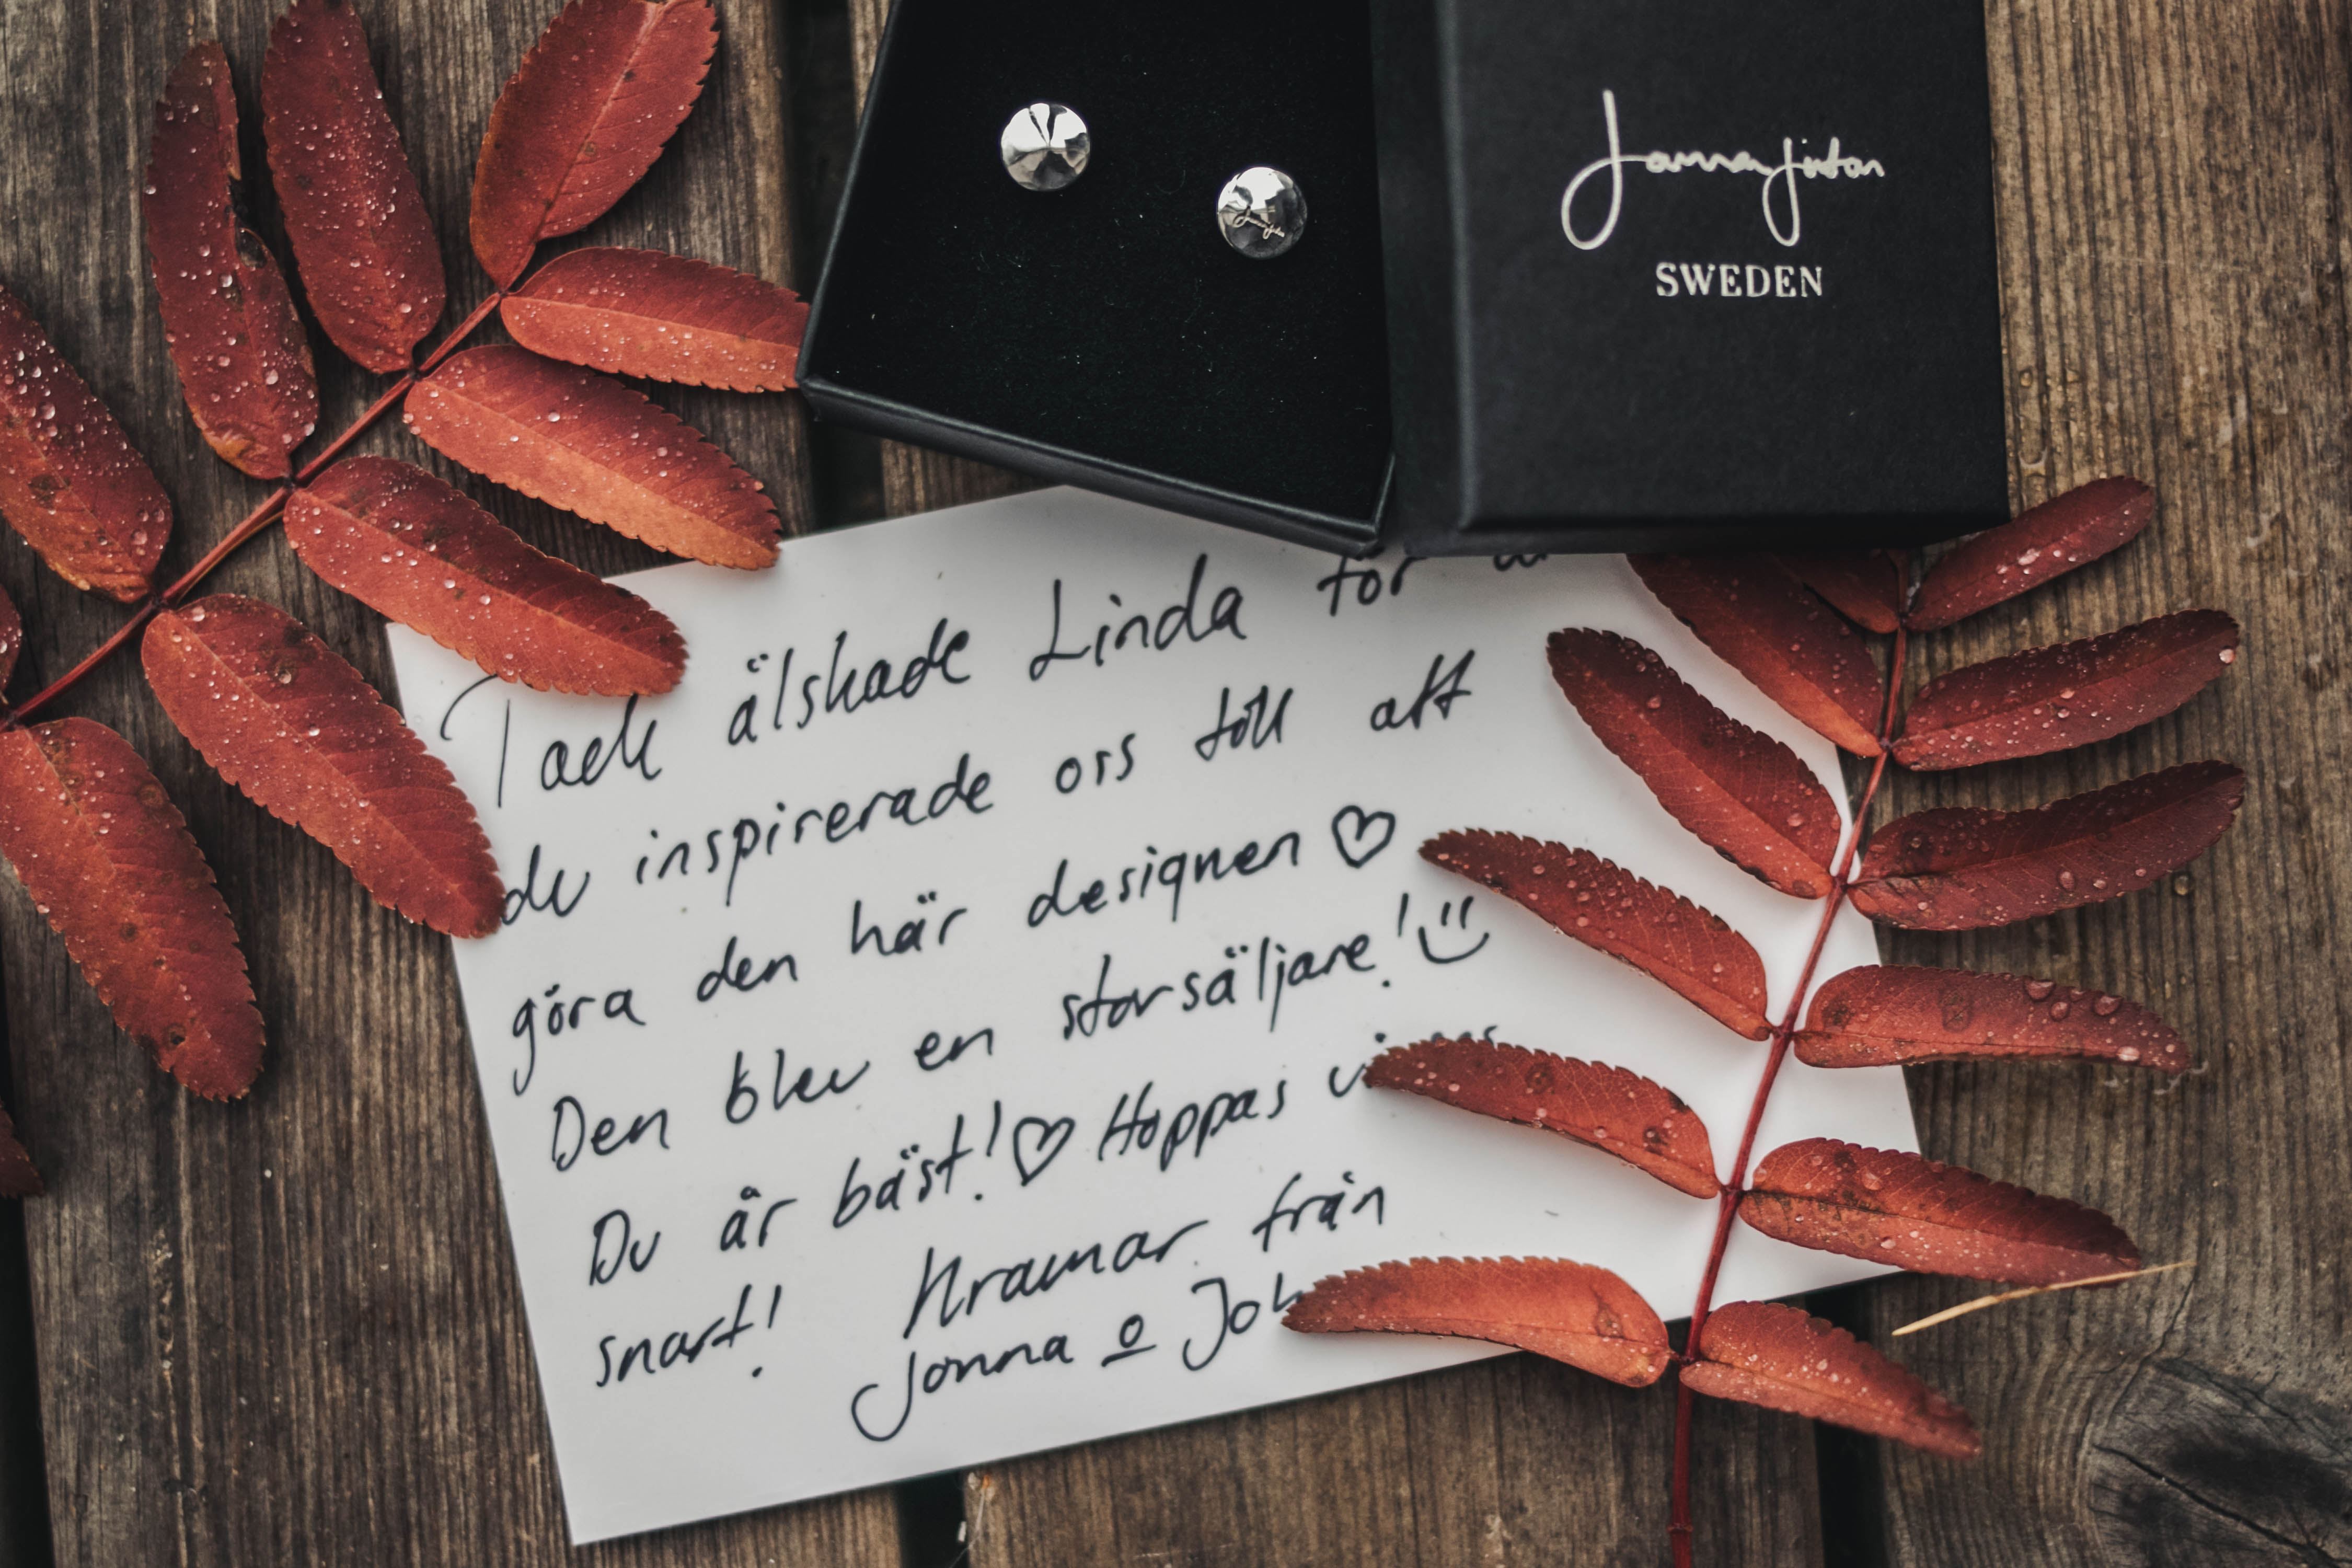 Jonna Jinton
SWEDEN
Tack älskade Linda för
du inspirerade oss till att
göra den här designen ♡
Den blev en storsäljare! :)
Du är bäst! ♡ Hoppas vi ses
snart! Kramar från
Jonna o Joh